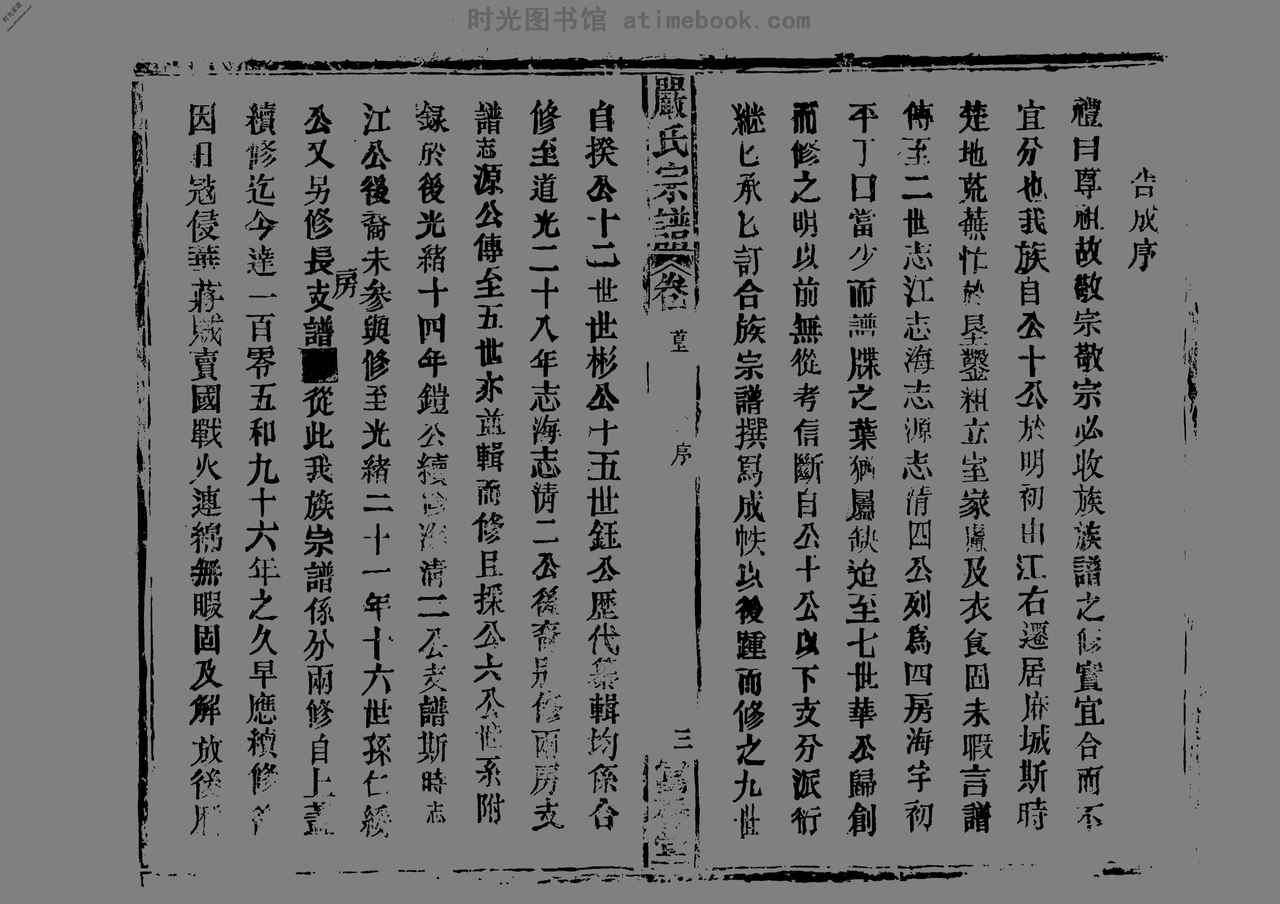 时光图书馆 atimebook.com
告成序
禮曰尊祖故敬宗敬宗必收族族譜之修實宜合而不
宜分也我族自公十公於明初由江右遷居麻城斯時
楚地荒蕪忙於墾鑿粗立室家慮及衣食固未暇言譜
傳至二世志江志海志源志清四公列為四房海宇初
平丁口當少而譜牒之葉猶屬缺迨至七世華公歸創
而修之明以前無從考信斷自公十公以下支分派衍
繼匕承匕訂合族宗譜撰寫成帙以後踵而修之九世
嚴氏宗譜 卷 首 序 三
自揆公十二世世彬公十五世鈺公歷代纂輯均係合
修至道光二十八年志海志清二公後裔另修兩房支
譜志源公傳至五世亦並輯而修且採公六公世系附
錄於後光緒十四年鎧公續修海清二公支譜斯時志
江公後裔未參與修至光緒二十一年十六世孫仁綬
公又另修長房支譜從此我族宗譜係分兩修自上蓋
續修迄今達一百零五和九十六年之久早應續修
因日寇侵華蔣賊賣國戰火連綿無暇固及解放後